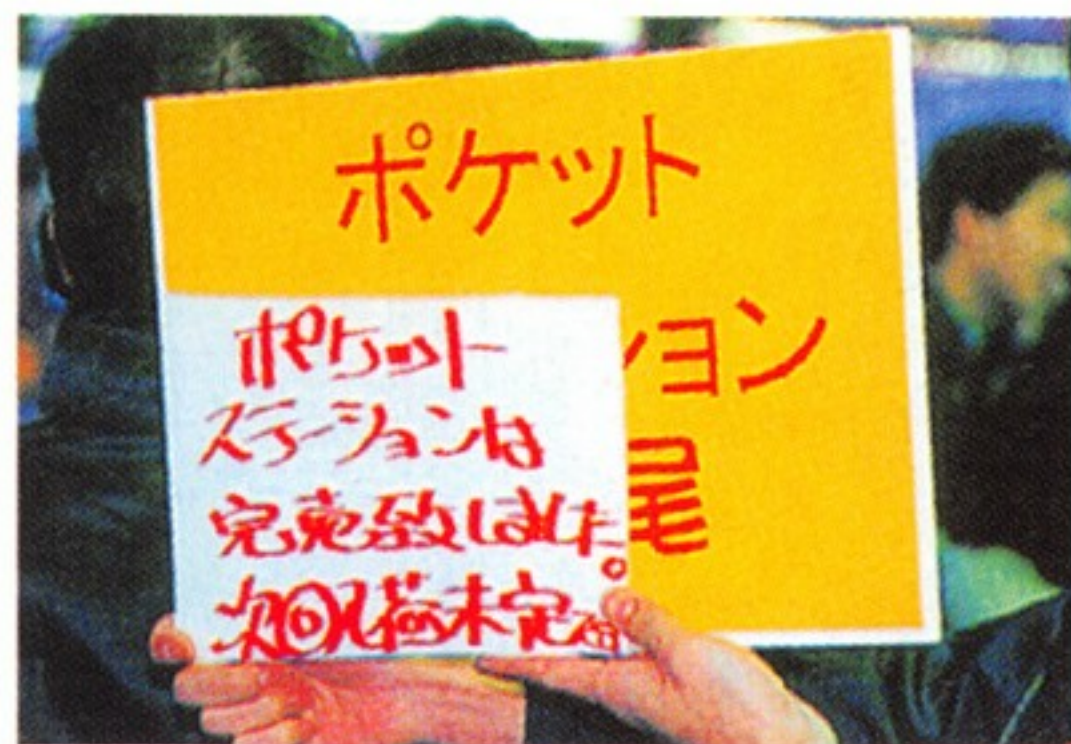 ポケット
ョン
尾
ポケット
ステーションは
完売致しました。
次回入荷未定です